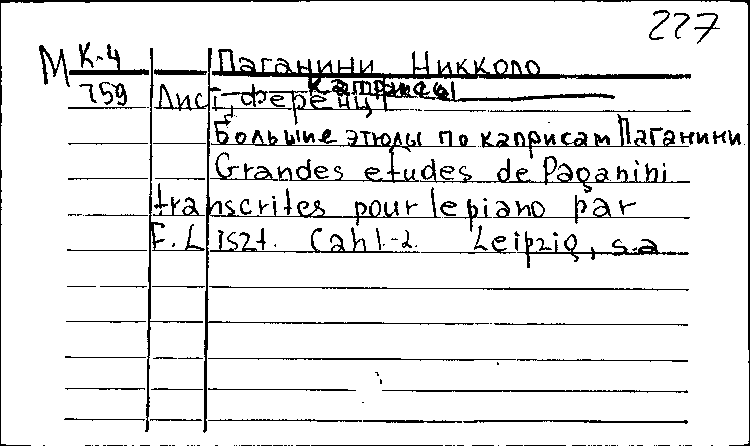 227
М К-4 Паганини Никколо
Каприсы
759 Лист, Ференц
Большие этюды по каприсам Паганини
Grandes etudes de Paganini
transcrites pour le piano par
F. Liszt. Cah 1-2. Leipzig, s.a